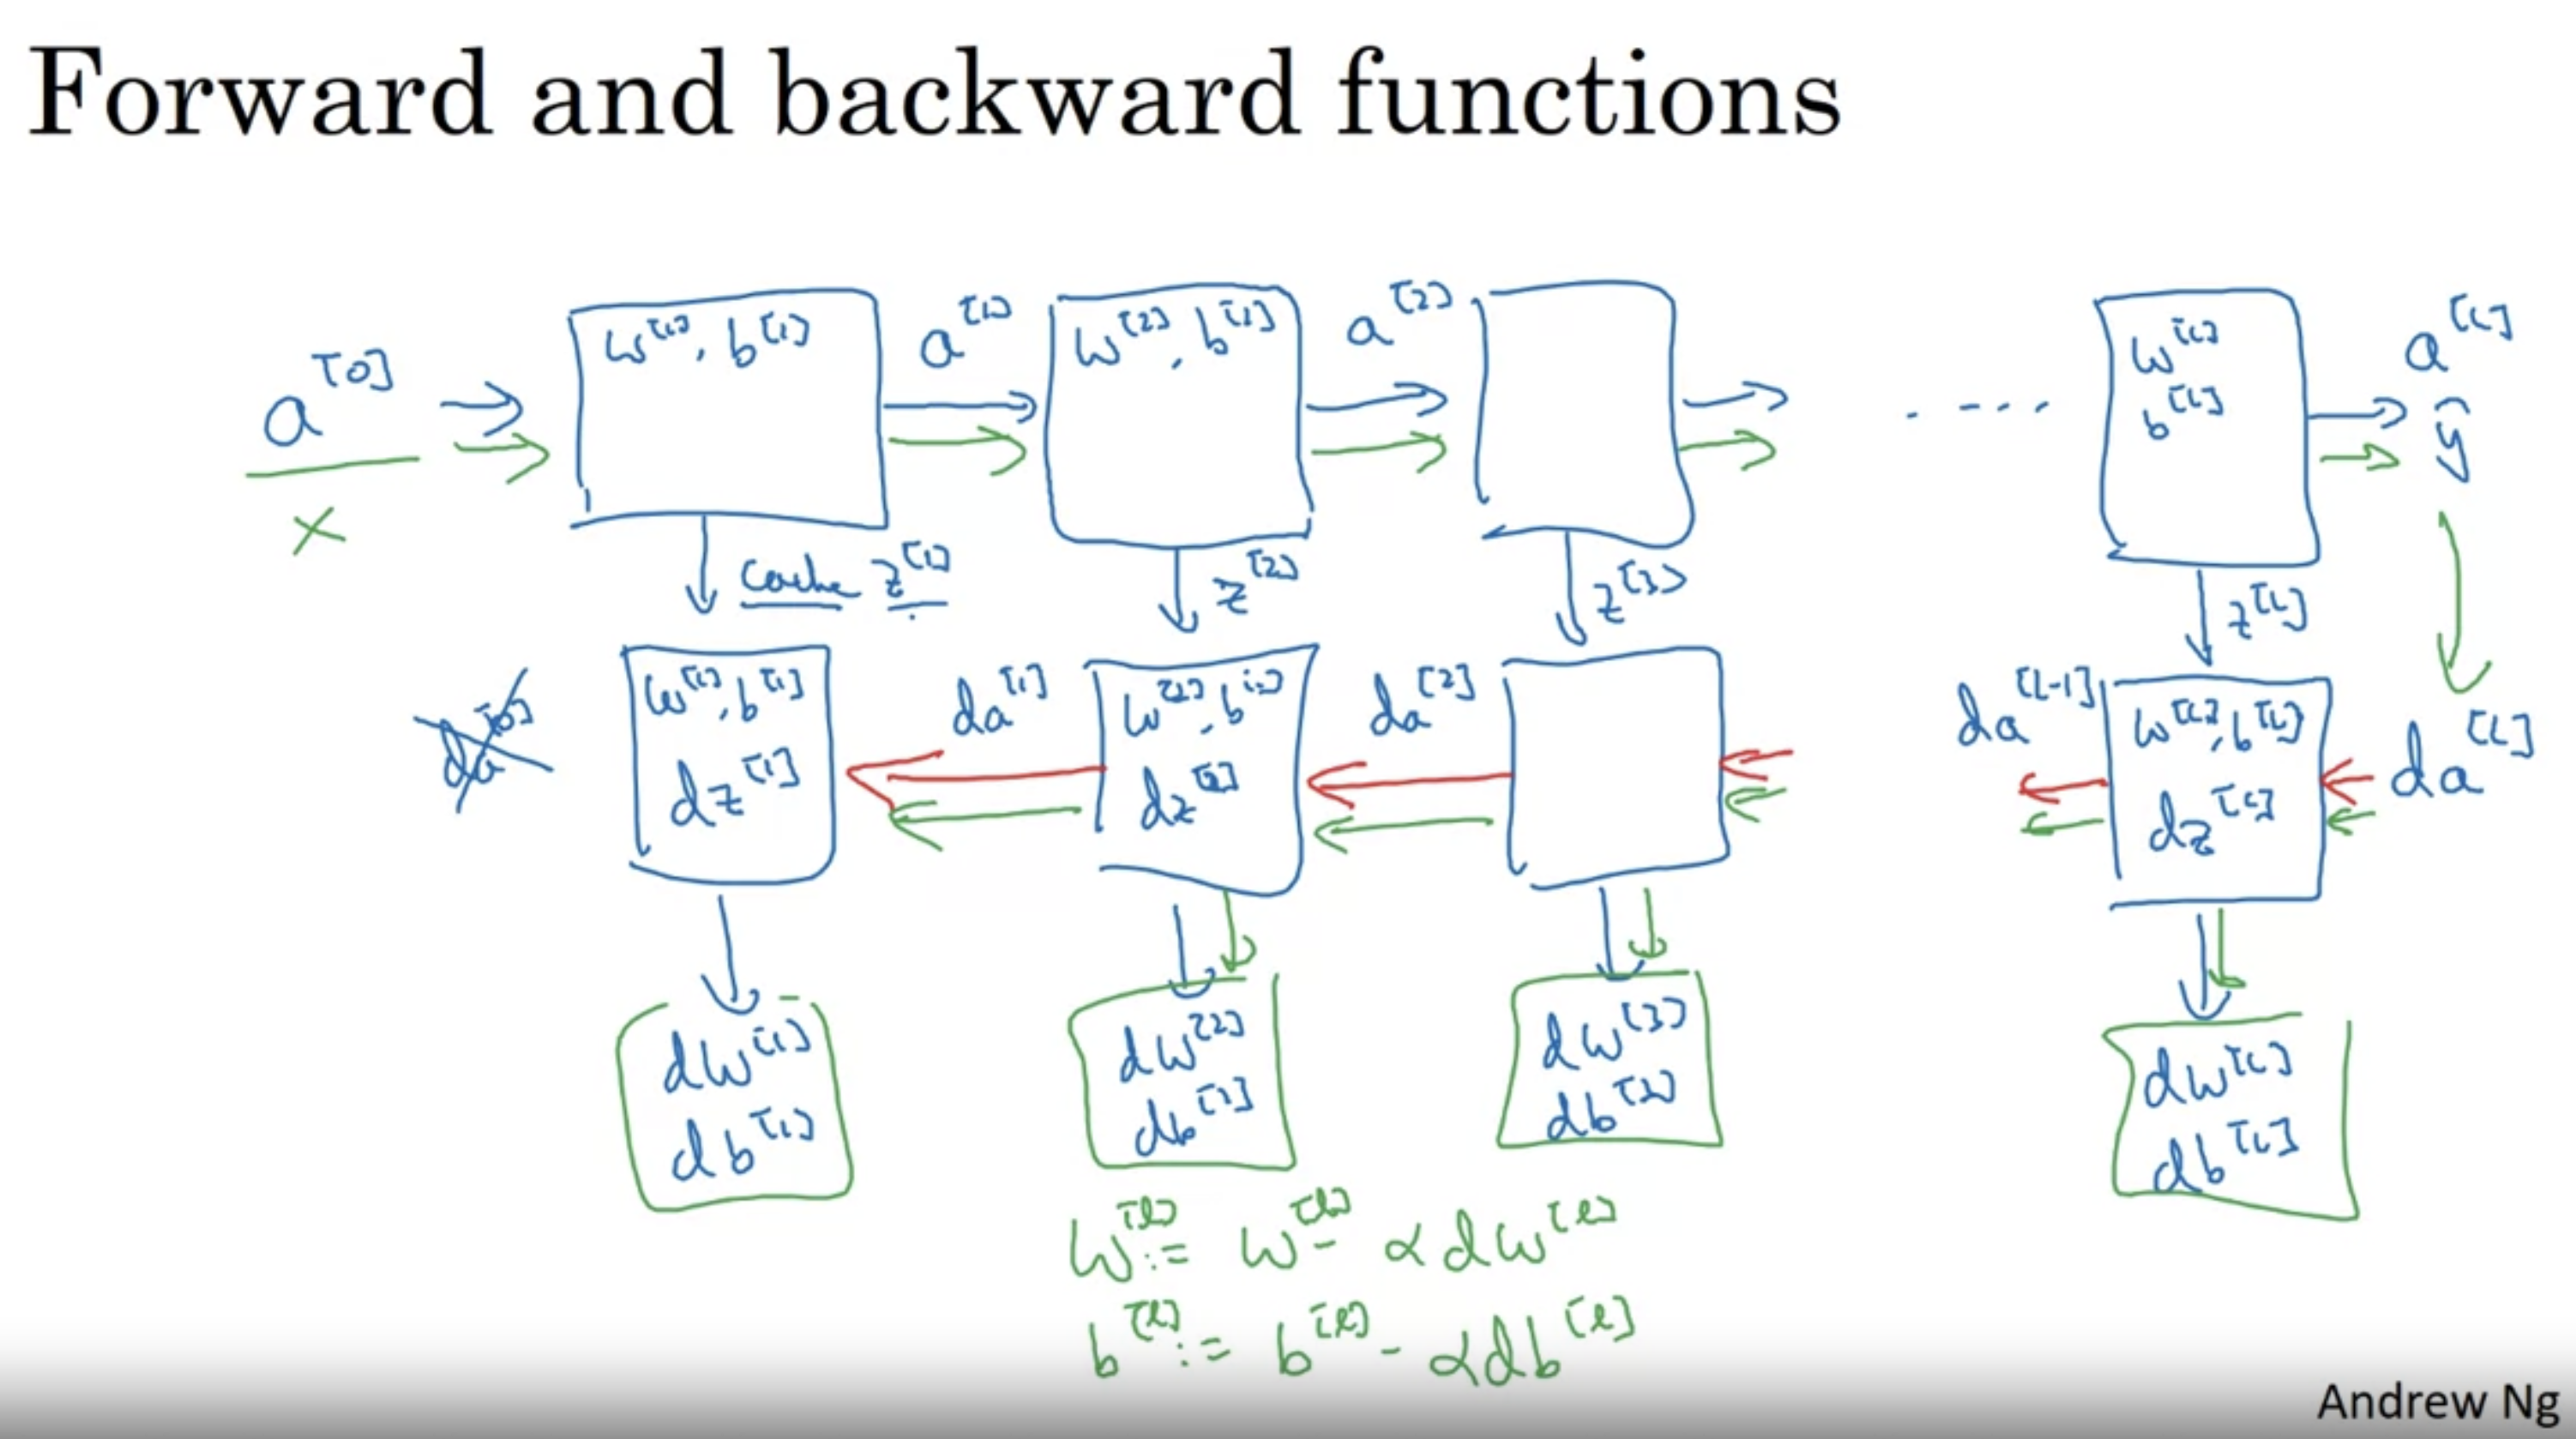 Forward and backward functions
a^[0] w^[1], b^[1] a^[1] w^[2], b^[2] a^[2] w^[L] a^[L]
b^[L] ŷ
X
cache z^[1] z^[2] z^[3] z^[L]
da^[0] w^[1], b^[1] da^[1] w^[2], b^[2] da^[2] da^[L-1] w^[L], b^[L] da^[L]
dz^[1] dz^[2] dz^[L]
dw^[1] dw^[2] dw^[3] dw^[L]
db^[1] db^[2] db^[3] db^[L]
w^[l] := w^[l] - α dw^[l]
b^[l] := b^[l] - α db^[l]
Andrew Ng